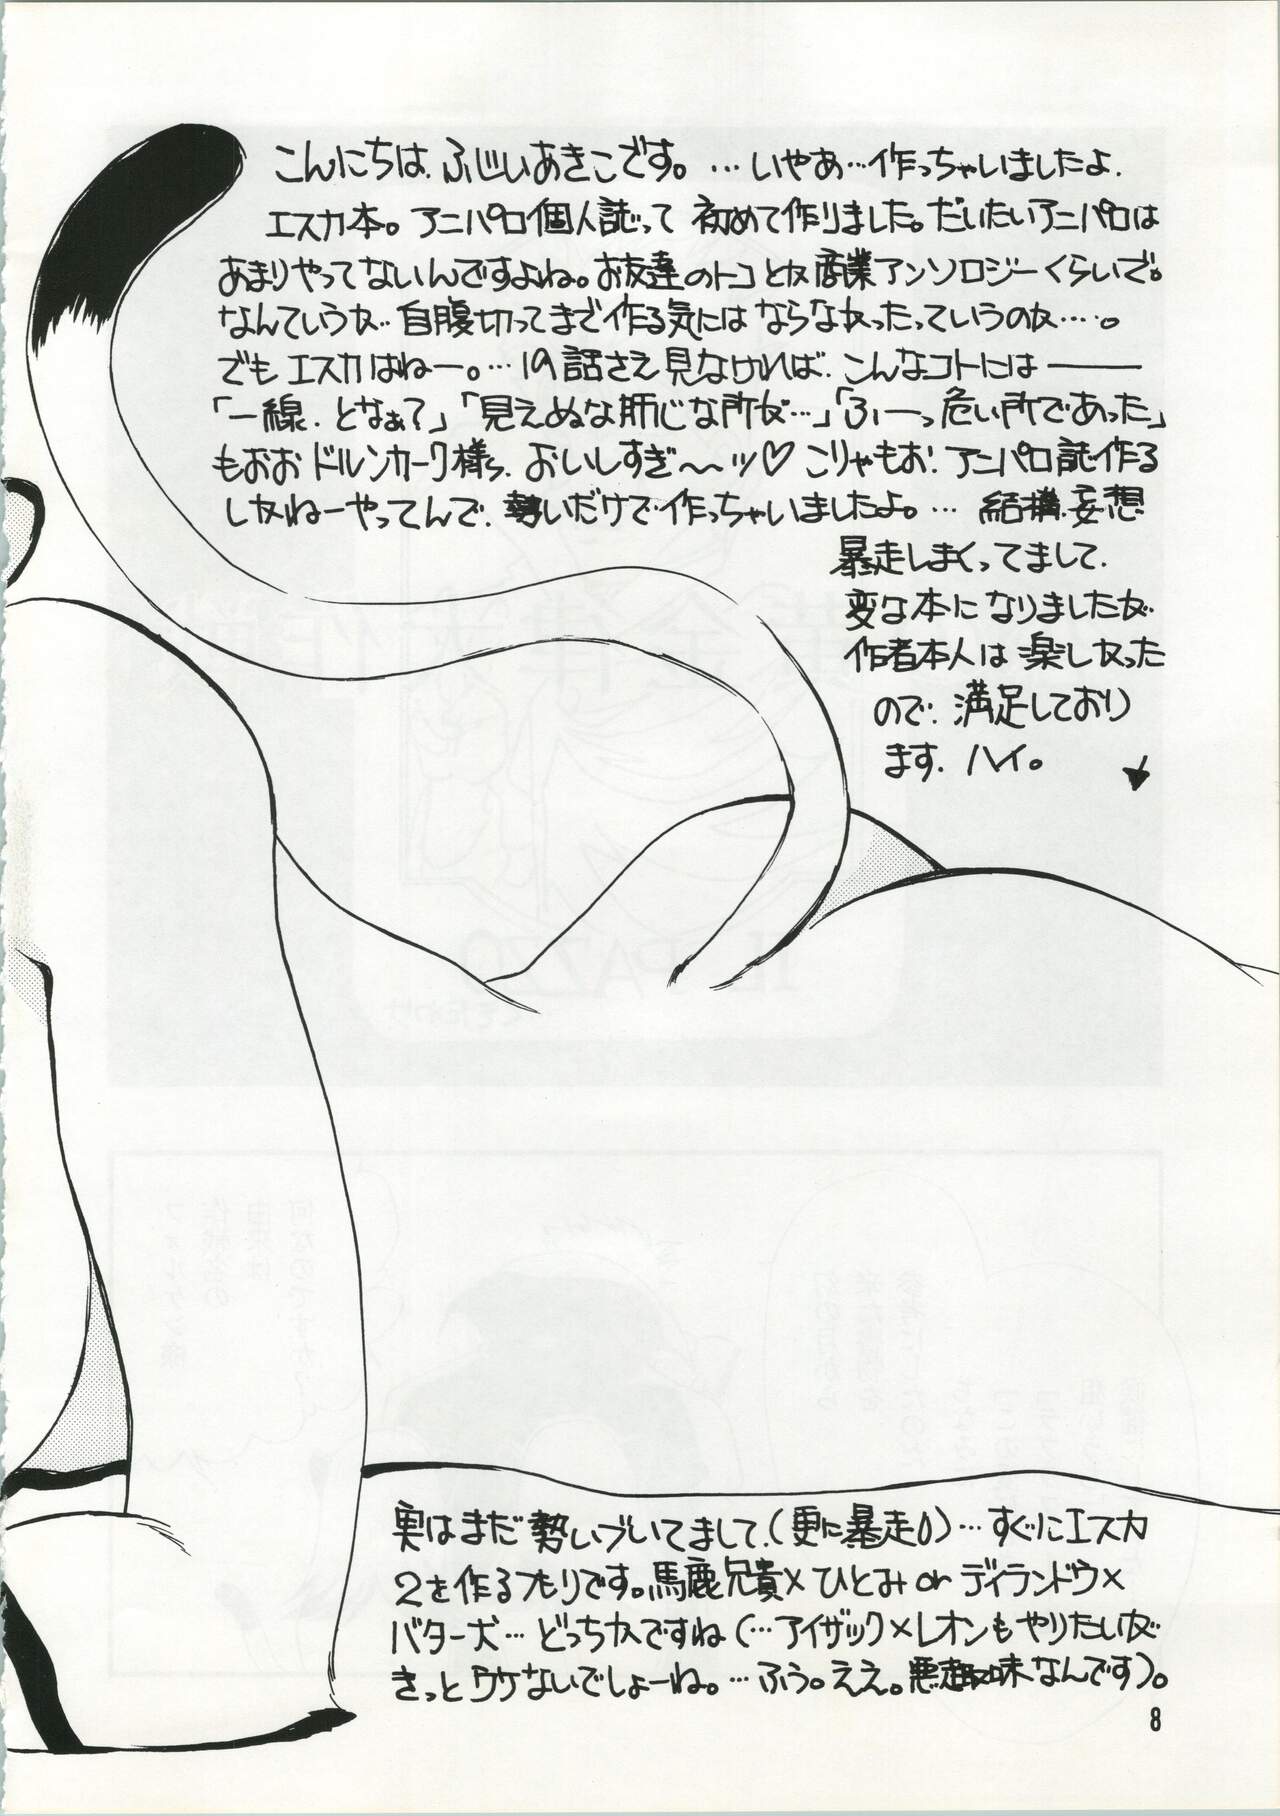 こんにちは、ふじいあきこです。…いやあ…作っちゃいましたよ、
エスカ本。アニパロ個人誌って 初めて作りました。だいたいアニパロは
あまりやってないんですよね。お友達のトコとか商業アンソロジーくらいで。
なんていうか…自腹切ってまで作る気には ならなかったっていうのか…。
でも エスカはねー。…19話さえ見なければ、こんなコトには――
「一線、となぁ?」「見えぬな肝じな所が…」「ふーっ危い所であった」
もおお ドルンカーク様っ、おいしすぎ〜〜ッ♡こりゃもお、アニパロ誌作る
しかねーやってんで、勢いだけで作っちゃいましたよ。… 結構、妄想
暴走しまくってまして、
変な本になりましたが
作者本人は 楽しかった
ので、満足しており
ます、ハイ。
実はまだ勢いづいてまして、(更に暴走0)…すぐにエスカ
2を作るつもりです。馬鹿兄貴×ひとみ or ディランドゥ×
バター犬…どっちかですね(…アイザック×レオンもやりたいが
きっとウケないでしょーね。…ふう。ええ。悪趣味なんです)。
8
IL PAZZO